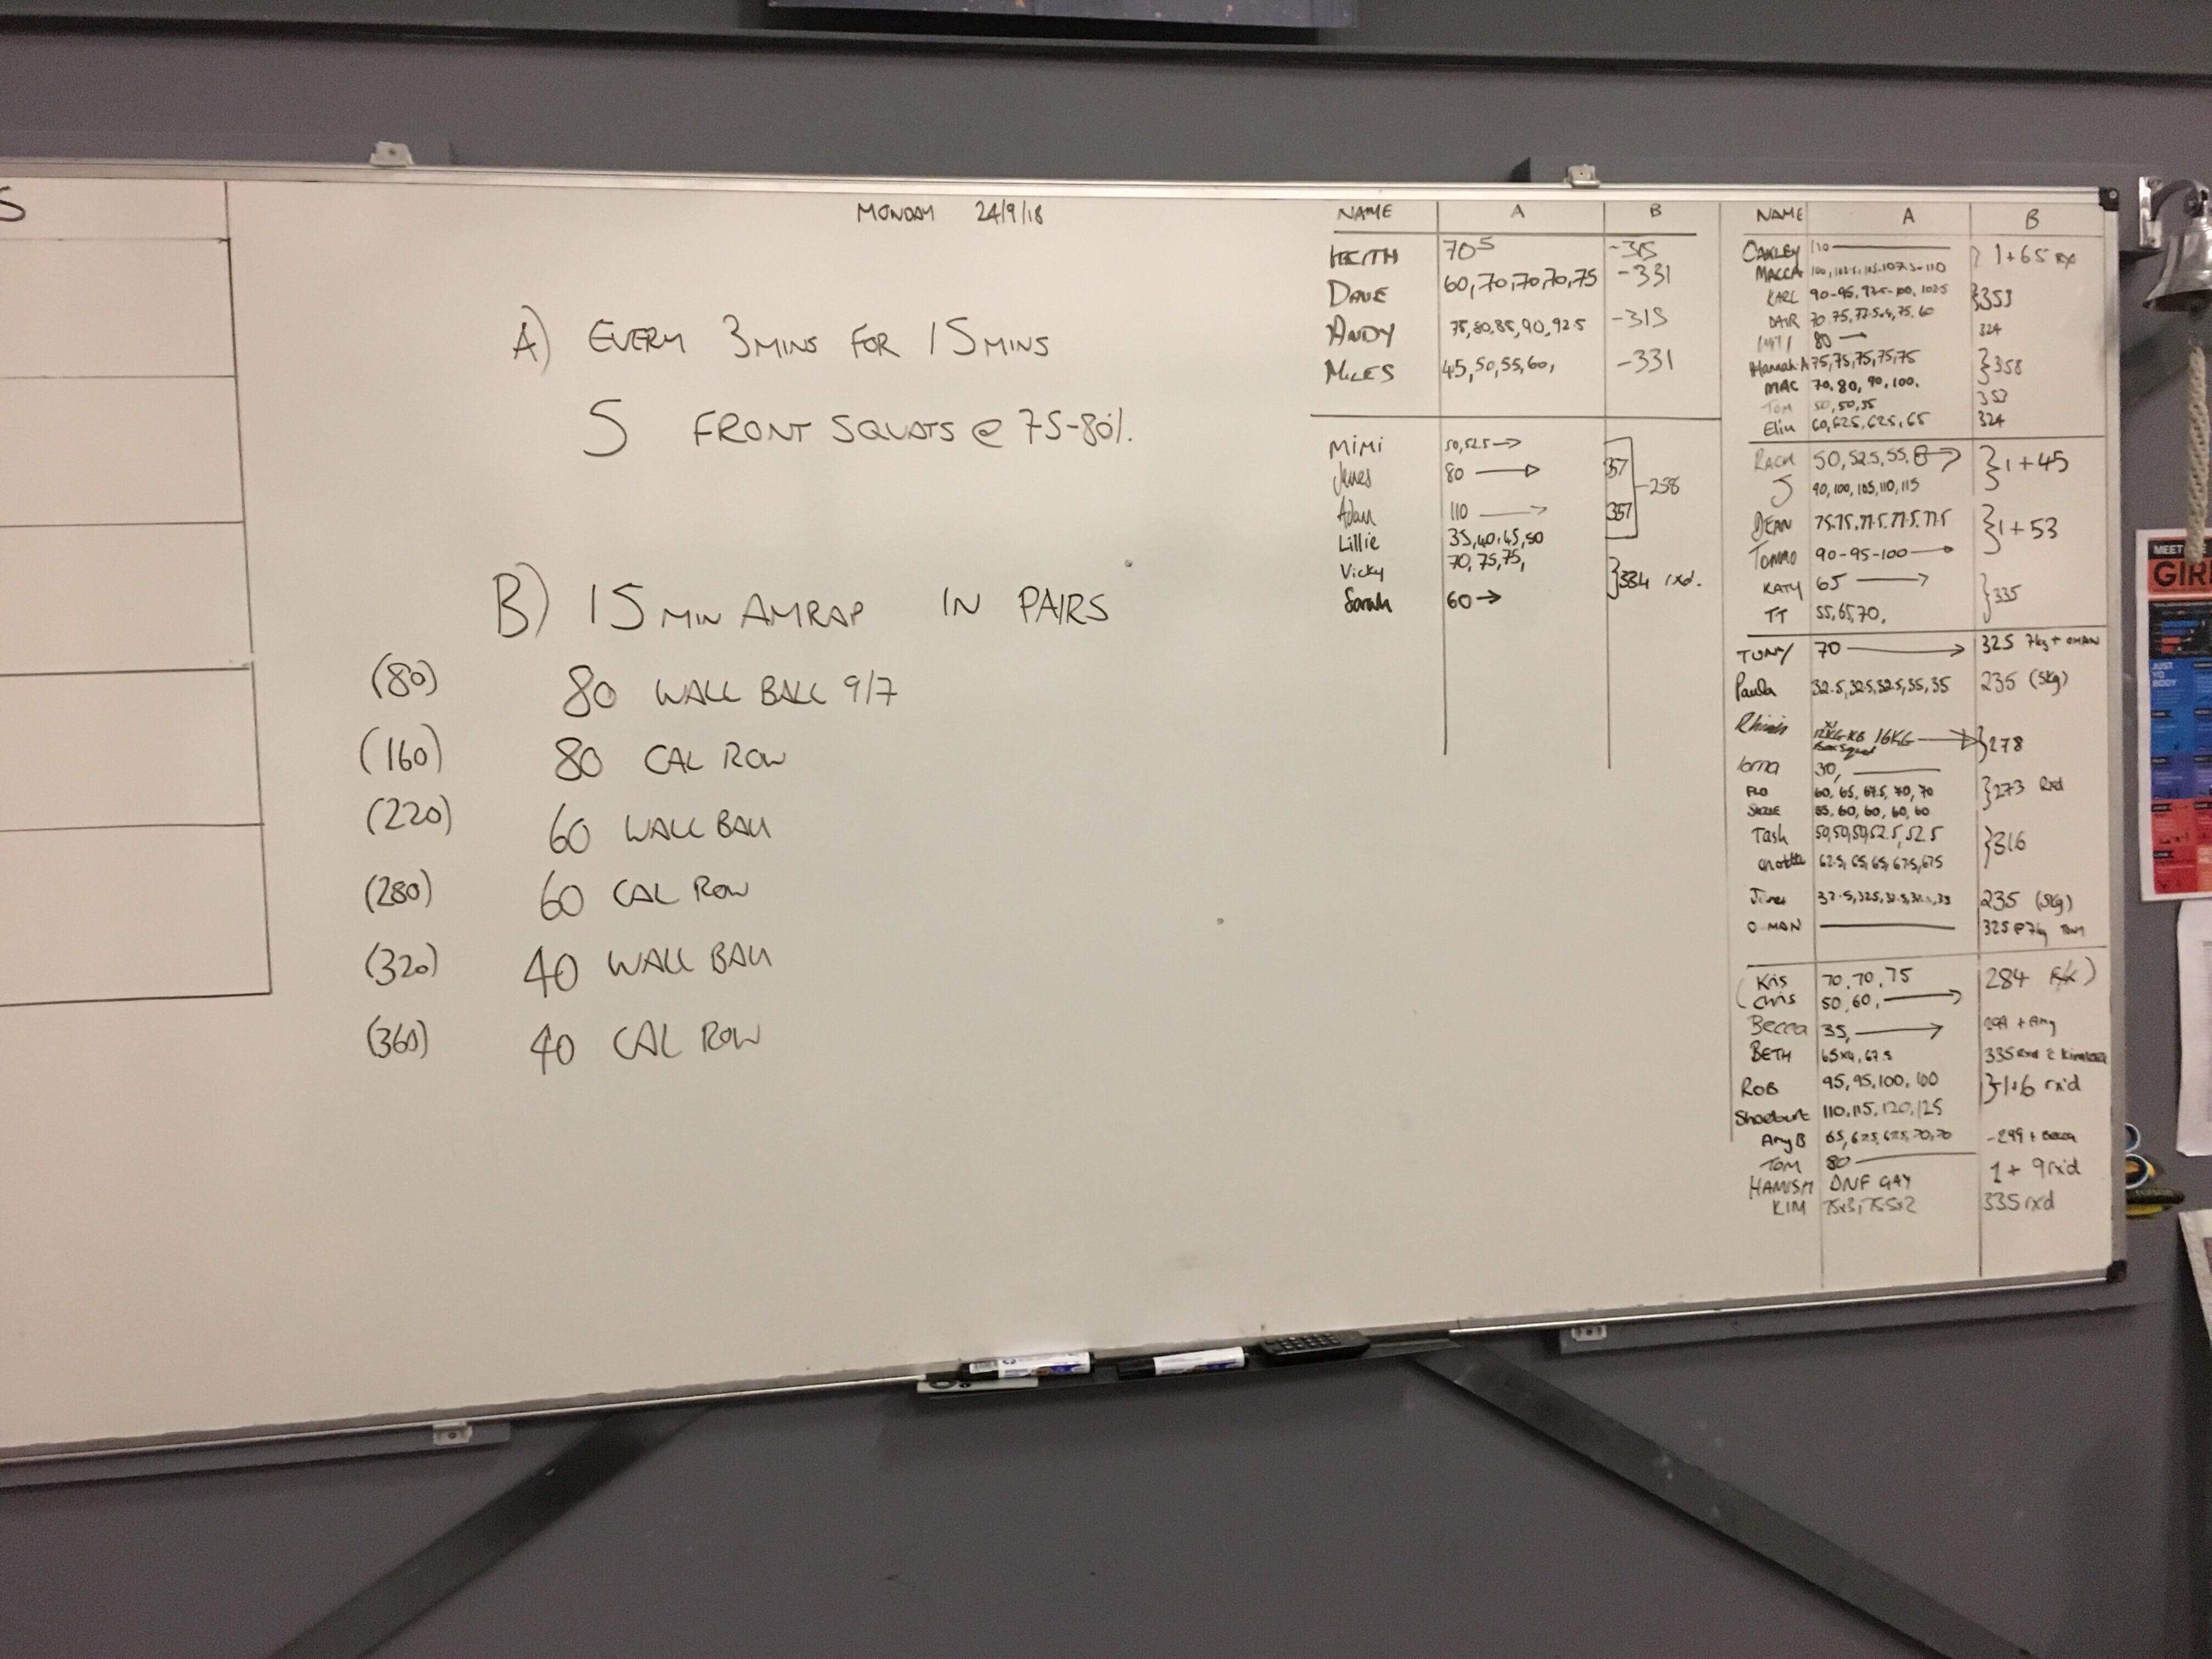 S
MONDAY 24/9/18
A) EVERY 3MINS FOR 15MINS
5 FRONT SQUATS @ 75-80%.
B) 15 MIN AMRAP IN PAIRS
(80) 80 WALL BALL 9/7
(160) 80 CAL ROW
(220) 60 WALL BALL
(280) 60 CAL ROW
(320) 40 WALL BALL
(360) 40 CAL ROW
NAME A B
KEITH 70 5 -315
DAVE 60,70,70,70,75 -331
ANDY 75,80,85,90,92.5 -315
MILES 45,50,55,60, -331
MIMI 50,52.5→
James 80 → 357
258
Adam 110 → 357
Lillie 35,40,45,50
Vicky 70,75,75,
}334 rxd.
Sarah 60→
NAME A B
OAKLEY 110
} 1+65 rx
MACCA 100, 102.5, 105-107.5-110
KARL 90-95, 97.5-100, 102.5
}353
70, 75, 72.5, 75, 60
324
80 →
Hannah A 75,75,75,75,75
}358
MAC 70, 80, 90, 100.
TOM 50,50,55 353
60,62.5,62.5,65 324
RACH 50,52.5,55, →
}1+45
J 90,100,105,110,115
DEAN 75.75,77.5,77.5,77.5
}1+53
TOMMO 90-95-100→
KATY 65 →
}335
TT 55,65,70,
TONY 70 → 325 7kg + OMAN
Paula 32.5,32.5,32.5,35,35 235 (5kg)
12KG KB 16KG →
Box Squat
}278
lorna 30,
FLO 60, 65, 67.5, 70, 70
}273 Rxd
SUZIE 55, 60, 60, 60, 60
Tash 50,50,50,52.5,52.5
}316
62.5, 65, 65, 67.5, 67.5
235 (5kg)
O MAN 325 @7kg Tony
Kris 70, 70, 75
284
Chris 50, 60, →
Becca 35, → + Amy
BETH 65x4, 67.5 335 Rxd
ROB 95, 95, 100, 100
}1+6 rxd
110, 115, 120, 125
Amy B 65, 62.5, 67.5, 70, 70 -299 + Becca
TOM 80 1 + 9 rxd
HAMISH DNF GAY
KIM 75x3, 335 rxd
MEET
GIR
JUST
YO
BODY